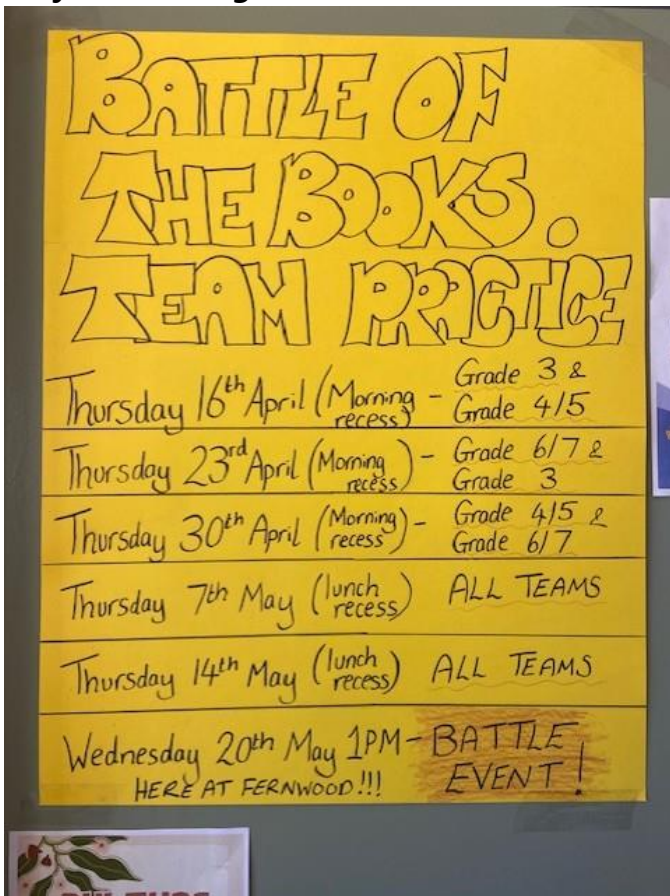 BATTLE OF
THE BOOKS.
TEAM PRACTICE
Thursday 16th April (Morning recess) - Grade 3 & Grade 4/5
Thursday 23rd April (Morning recess) - Grade 6/7 & Grade 3
Thursday 30th April (Morning recess) - Grade 4/5 & Grade 6/7
Thursday 7th May (lunch recess) ALL TEAMS
Thursday 14th May (lunch recess) ALL TEAMS
Wednesday 20th May 1PM - BATTLE EVENT!
HERE AT FERNWOOD!!!